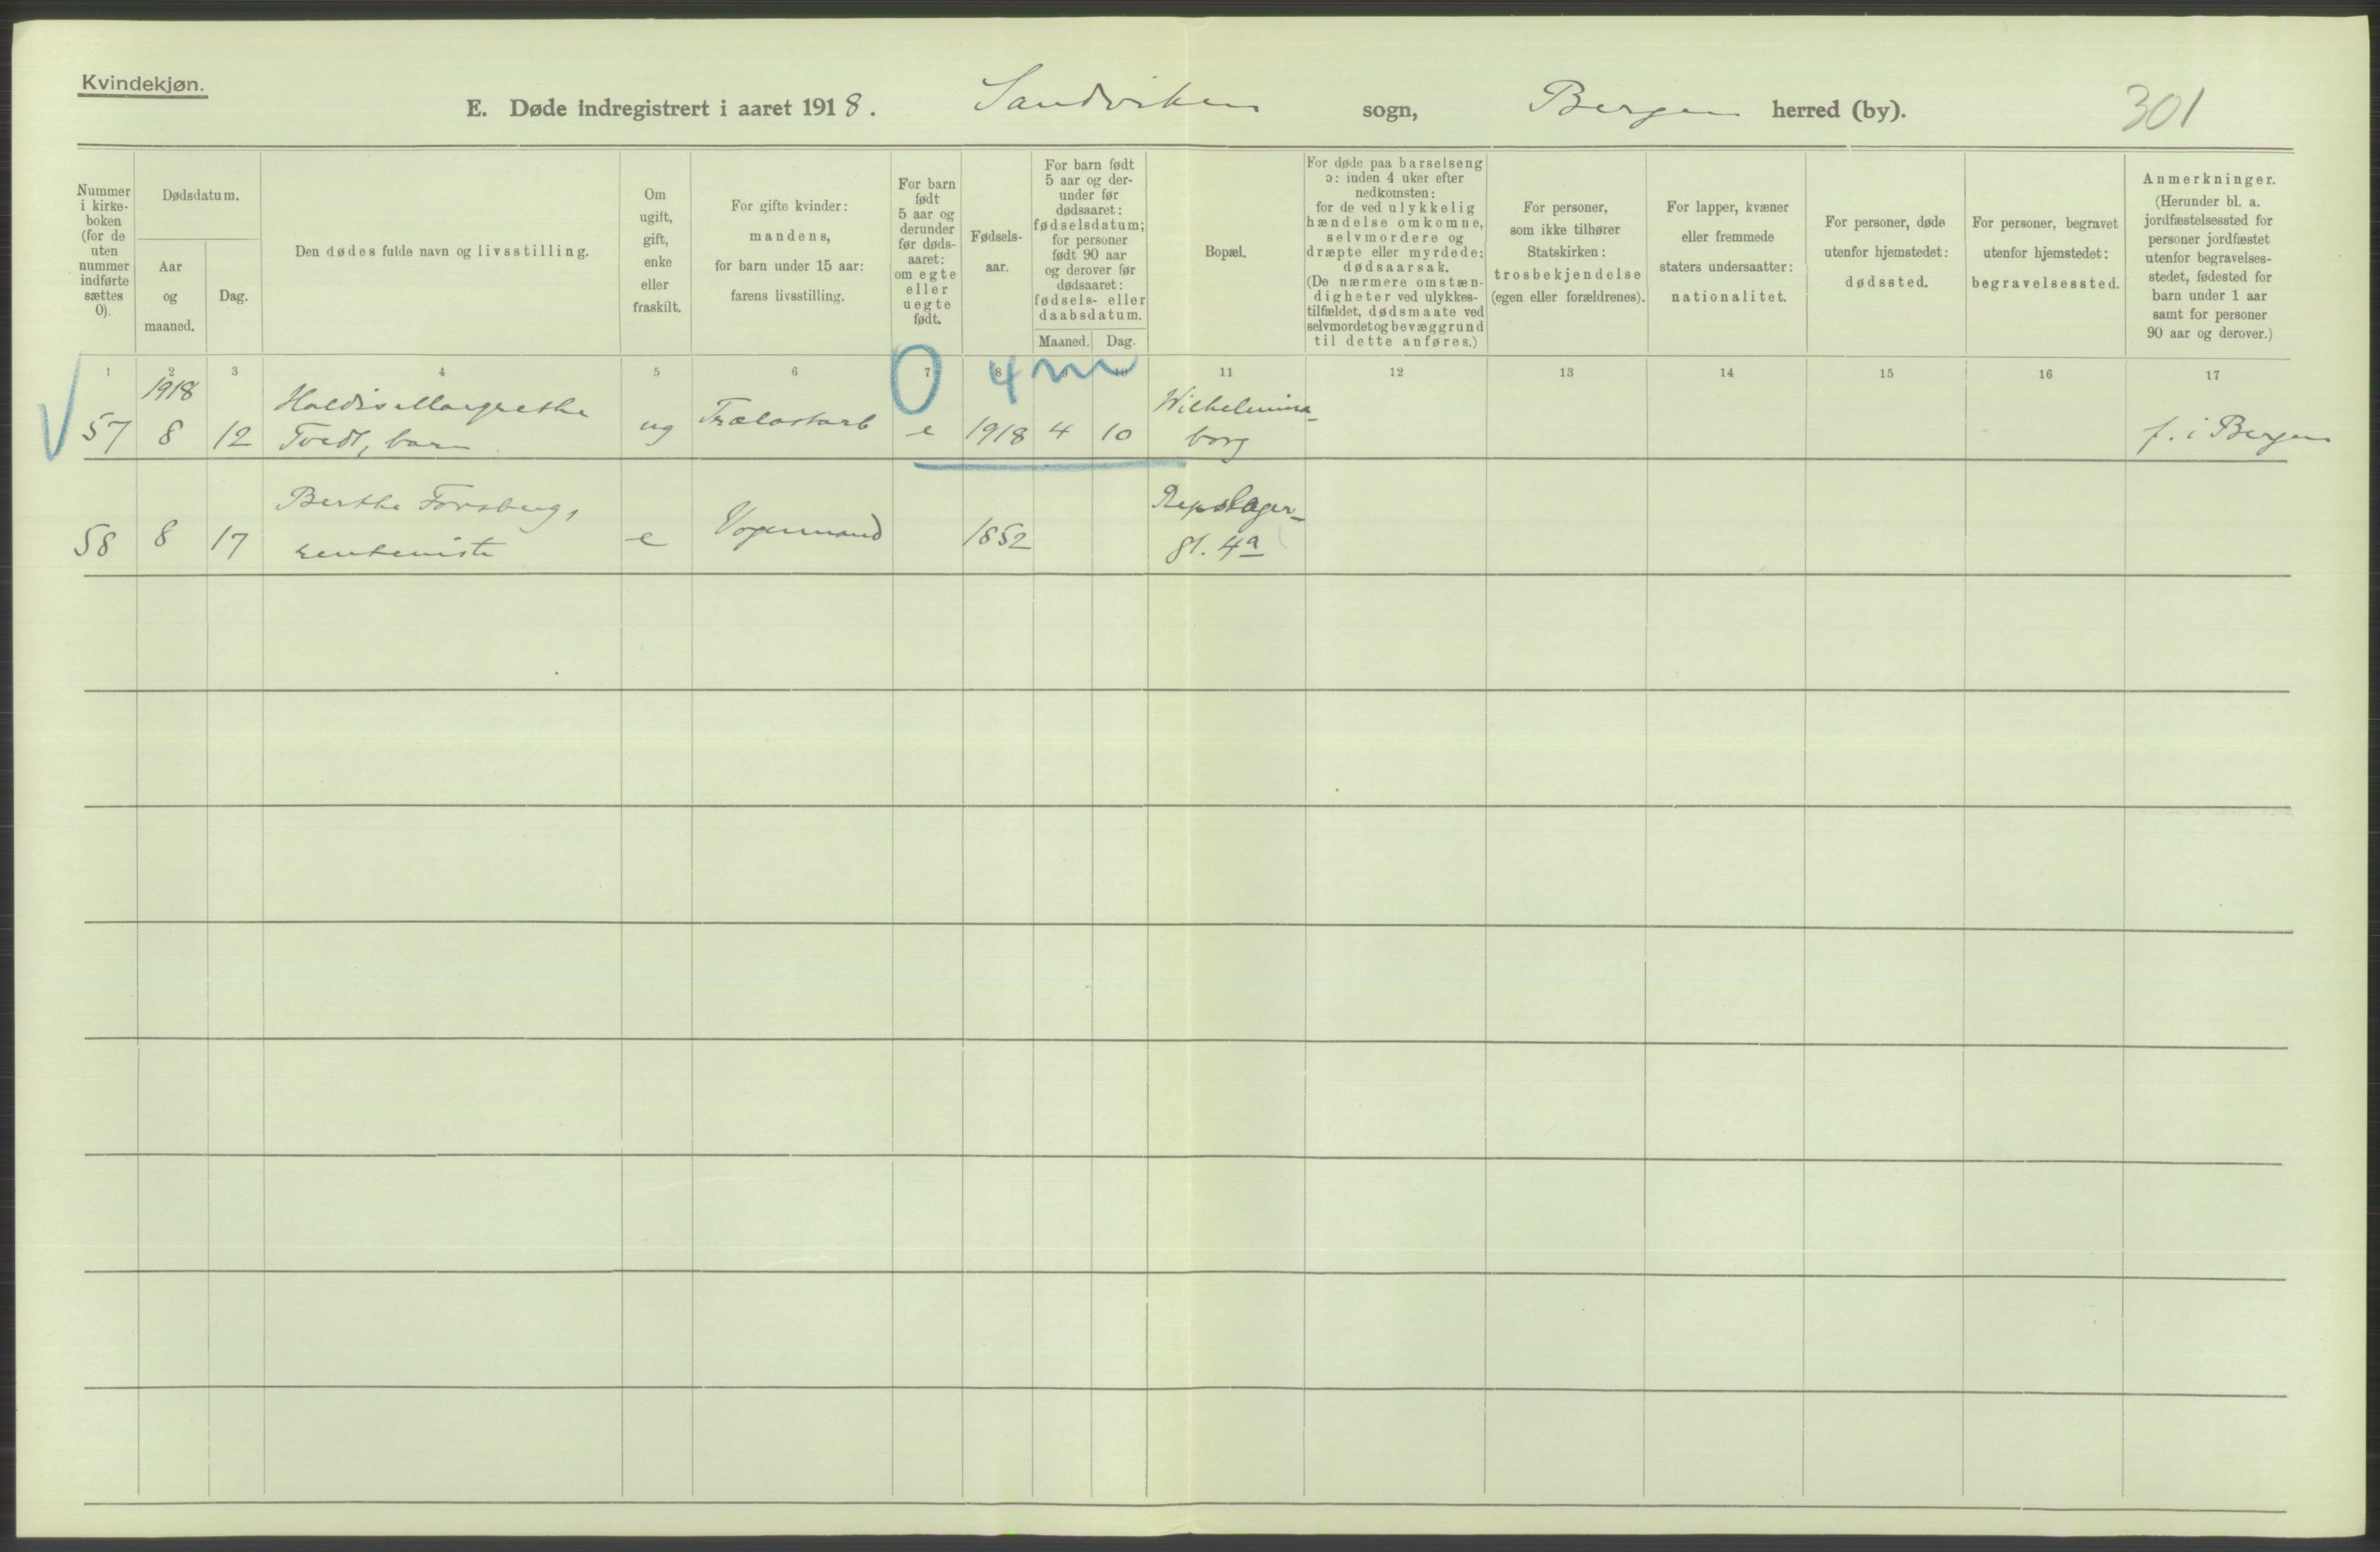 Kvindekjøn.
E. Døde indregistrert i aaret 1918. Sandviken sogn, Bergen herred (by). 301
Nummer
i kirke-
boken
(for de
uten
nummer
indførte
sættes
0).
Dødsdatum.
Aar
og
maaned.
Dag.
Den dødes fulde navn og livsstilling.
Om
ugift,
gift,
enke
eller
fraskilt.
For gifte kvinder:
mandens,
for barn under 15 aar:
farens livsstilling.
For barn
født
5 aar og
derunder
før døds-
aaret:
om egte
eller
uegte
født.
Fødsels-
aar.
For barn født
5 aar og der-
under før
dødsaaret:
fødselsdatum;
for personer
født 90 aar
og derover før
dødsaaret:
fødsels- eller
daabsdatum.
Maaned. Dag.
Bopæl.
For døde paa barselseng
ɔ: inden 4 uker efter
nedkomsten:
for de ved ulykkelig
hændelse omkomne,
selvmordere og
dræpte eller myrdede:
dødsaarsak.
(De nærmere omstæn-
digheter ved ulykkes-
tilfældet, dødsmaate ved
selvmordet og bevæggrund
til dette anføres.)
For personer,
som ikke tilhører
Statskirken:
trosbekjendelse
(egen eller forældrenes).
For lapper, kvæner
eller fremmede
staters undersaatter:
nationalitet.
For personer, døde
utenfor hjemstedet:
dødssted.
For personer, begravet
utenfor hjemstedet:
begravelsessted.
Anmerkninger.
(Herunder bl. a.
jordfæstelsessted for
personer jordfæstet
utenfor begravelses-
stedet, fødested for
barn under 1 aar
samt for personer
90 aar og derover.)
1 2 3 4 5 6 7 8 9 10 11 12 13 14 15 16 17
0 4 m
1918 Haldis Margrethe Wilhelmina-
57 8 12 Tvedt, barn ug Trælastarb e 1918 4 10 borg f. i Bergen
Berthe Forsberg, Repslager-
58 8 17 renteniste e Vognmand 1852 gt. 4a